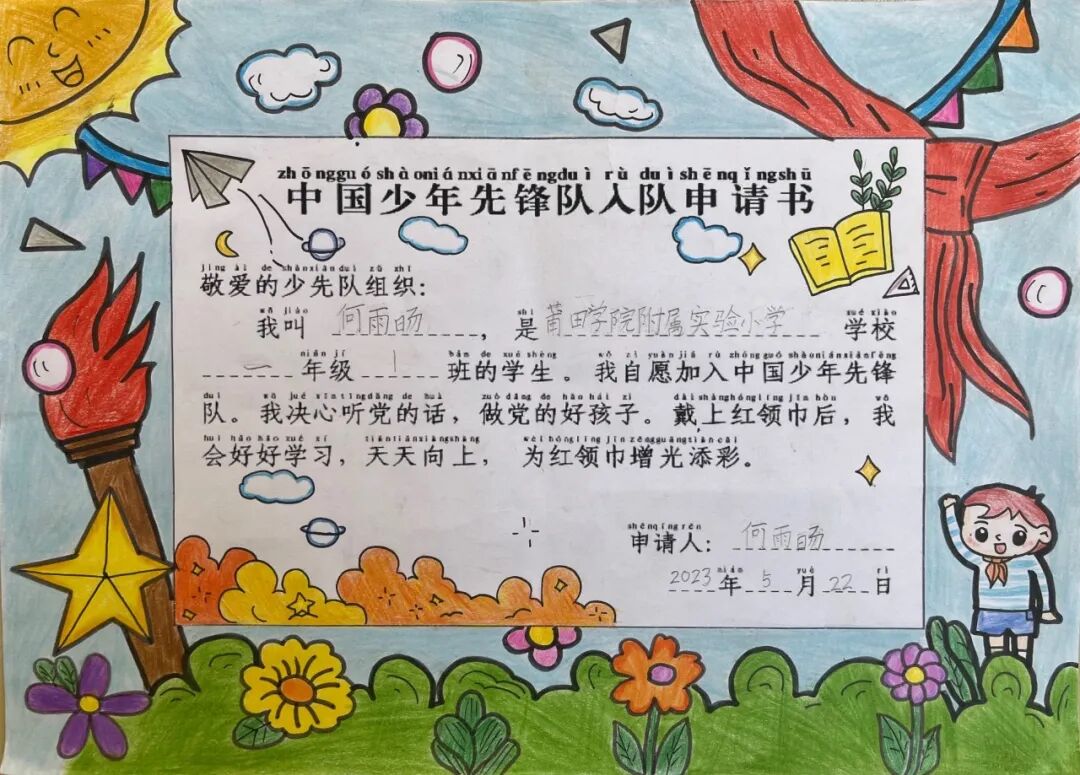 zhōngguó shàonián xiānfēngduì rù duì shēnqǐngshū
中国少年先锋队入队申请书
jìng ài de shàoxiānduì zǔ zhī
敬爱的少先队组织：
wǒ jiào shì xué xiào
我叫 何雨旸 ，是 莆田学院附属实验小学 学校
nián jí bān de xué shēng wǒ zì yuàn jiā rù zhōng guó shàoniánxiānfēng
一 年级 1 班的学生。我自愿加入中国少年先锋
duì wǒ jué xīntīngdǎng de huà zuò dǎng de hǎo hái zi dài shànghónglǐng jīn hòu wǒ
队。我决心听党的话，做党的好孩子。戴上红领巾后，我
huì hǎo hǎo xué xí tiāntiānxiàngshàng wèi hónglǐng jīn zēngguāngtiāncǎi
会好好学习，天天向上，为红领巾增光添彩。
shēnqǐngrén
申请人： 何雨旸
nián yuè rì
2023 年 5 月 22 日